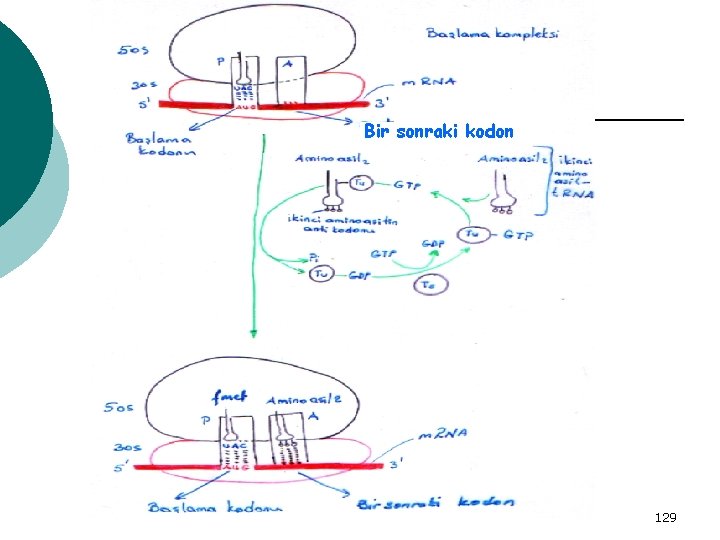 Başlama kompleksi
50s
P
A
30s
mRNA
UAC
AUG
5'
3'
Başlama
kodonu
Bir sonraki kodon
Amino asil2
Tu
GTP
ikinci aminoasitin
anti kodonu
Aminoasil2
ikinci
amino
asit-
tRNA
Tu
GTP
GDP
GTP
Pi
Tu
GDP
Ts
fmet
Aminoasil2
50s
P
A
30s
mRNA
UAC
5'
3'
Başlama kodonu
Bir sonraki kodon
129